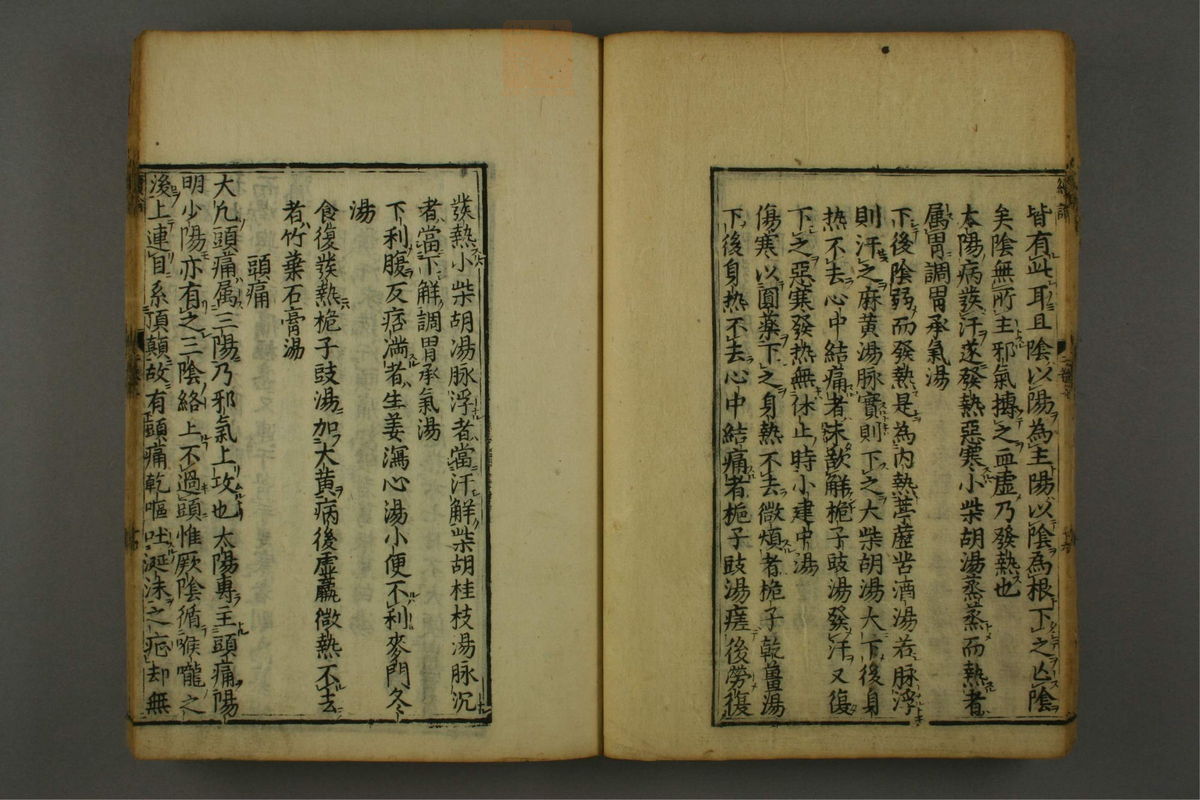 皆有此耳且陰以陽為主陽以陰為根下之凶陰
矣陰無所主邪氣摶之血虛乃發熱也
太陽病發汗遂發熱惡寒小柴胡湯蒸蒸而熱者
属胃調胃承氣湯
下後陰弱而發熱是為内熱葶藶苦酒湯若脉浮
則汗之麻黄湯脉實則下之大柴胡湯大下後身
热不去心中結痛者未欲解梔子豉湯發汗又復
下之惡寒發热無休止時小建中湯
傷寒以圓藥下之身熱不去微煩者梔子乾薑湯
下後身热不去心中結痛者梔子豉湯瘥後勞復
發熱小柴胡湯脉浮者當汗解柴胡桂枝湯脉沉
者當下解調胃承氣湯
下利腹反痞満者生姜瀉心湯小便不利麥門冬
湯
食復發熱梔子豉湯加大黄病後虛羸微熱不去
者竹葉石膏湯
頭痛
大凢頭痛属三陽乃邪氣上攻也太陽專主頭痛陽
明少陽亦有之三陰絡上不過頭惟厥陰循喉嚨之
後上連目系頂巔故有頭痛乾嘔吐涎沫之症却無